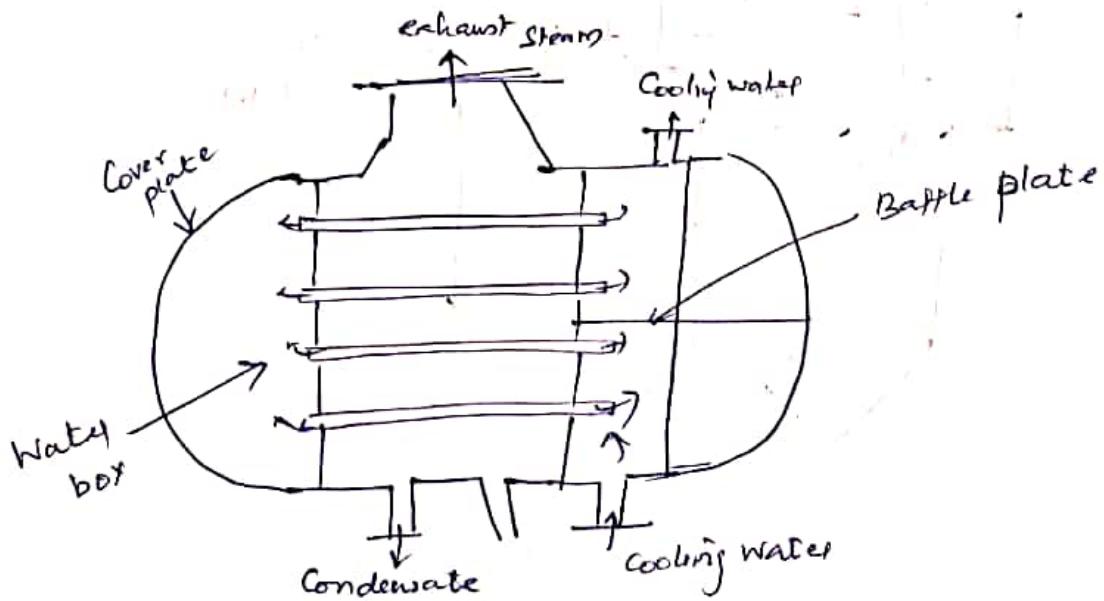 exhaust steam
Cooling water
Cover
plate
Baffle plate
Water
box
Cooling water
Condensate